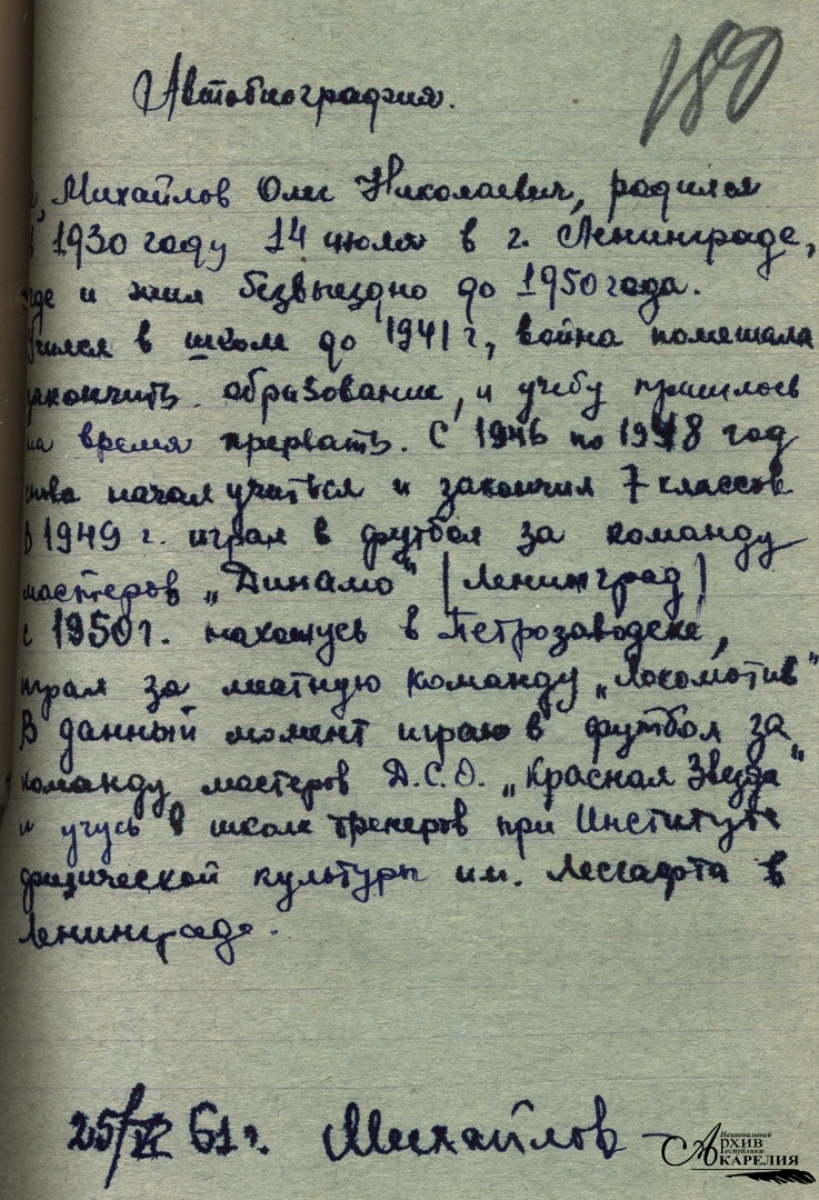 180
Автобиография.
Михайлов Олег Николаевич, родился
в 1930 году 14 июля в г. Ленинграде,
где и жил безвыездно до 1950 года.
Учился в школе до 1941 г, война помешала
закончить образование, и учебу пришлось
на время прервать. С 1946 по 1948 год
снова начал учиться и закончил 7 классов
В 1949 г. играл в футбол за команду
мастеров „Динамо" (Ленинград)
с 1950 г. нахожусь в Петрозаводске,
играл за местную команду „Локомотив"
В данный момент играю в футбол за
команду мастеров Д.С.О. „Красная Звезда"
и учусь в школе тренеров при Институте
физической культуры им. Лесгафта в
Ленинграде.
25/VI 61 г. Михайлов
Национальный
Архив
Республики
Карелия